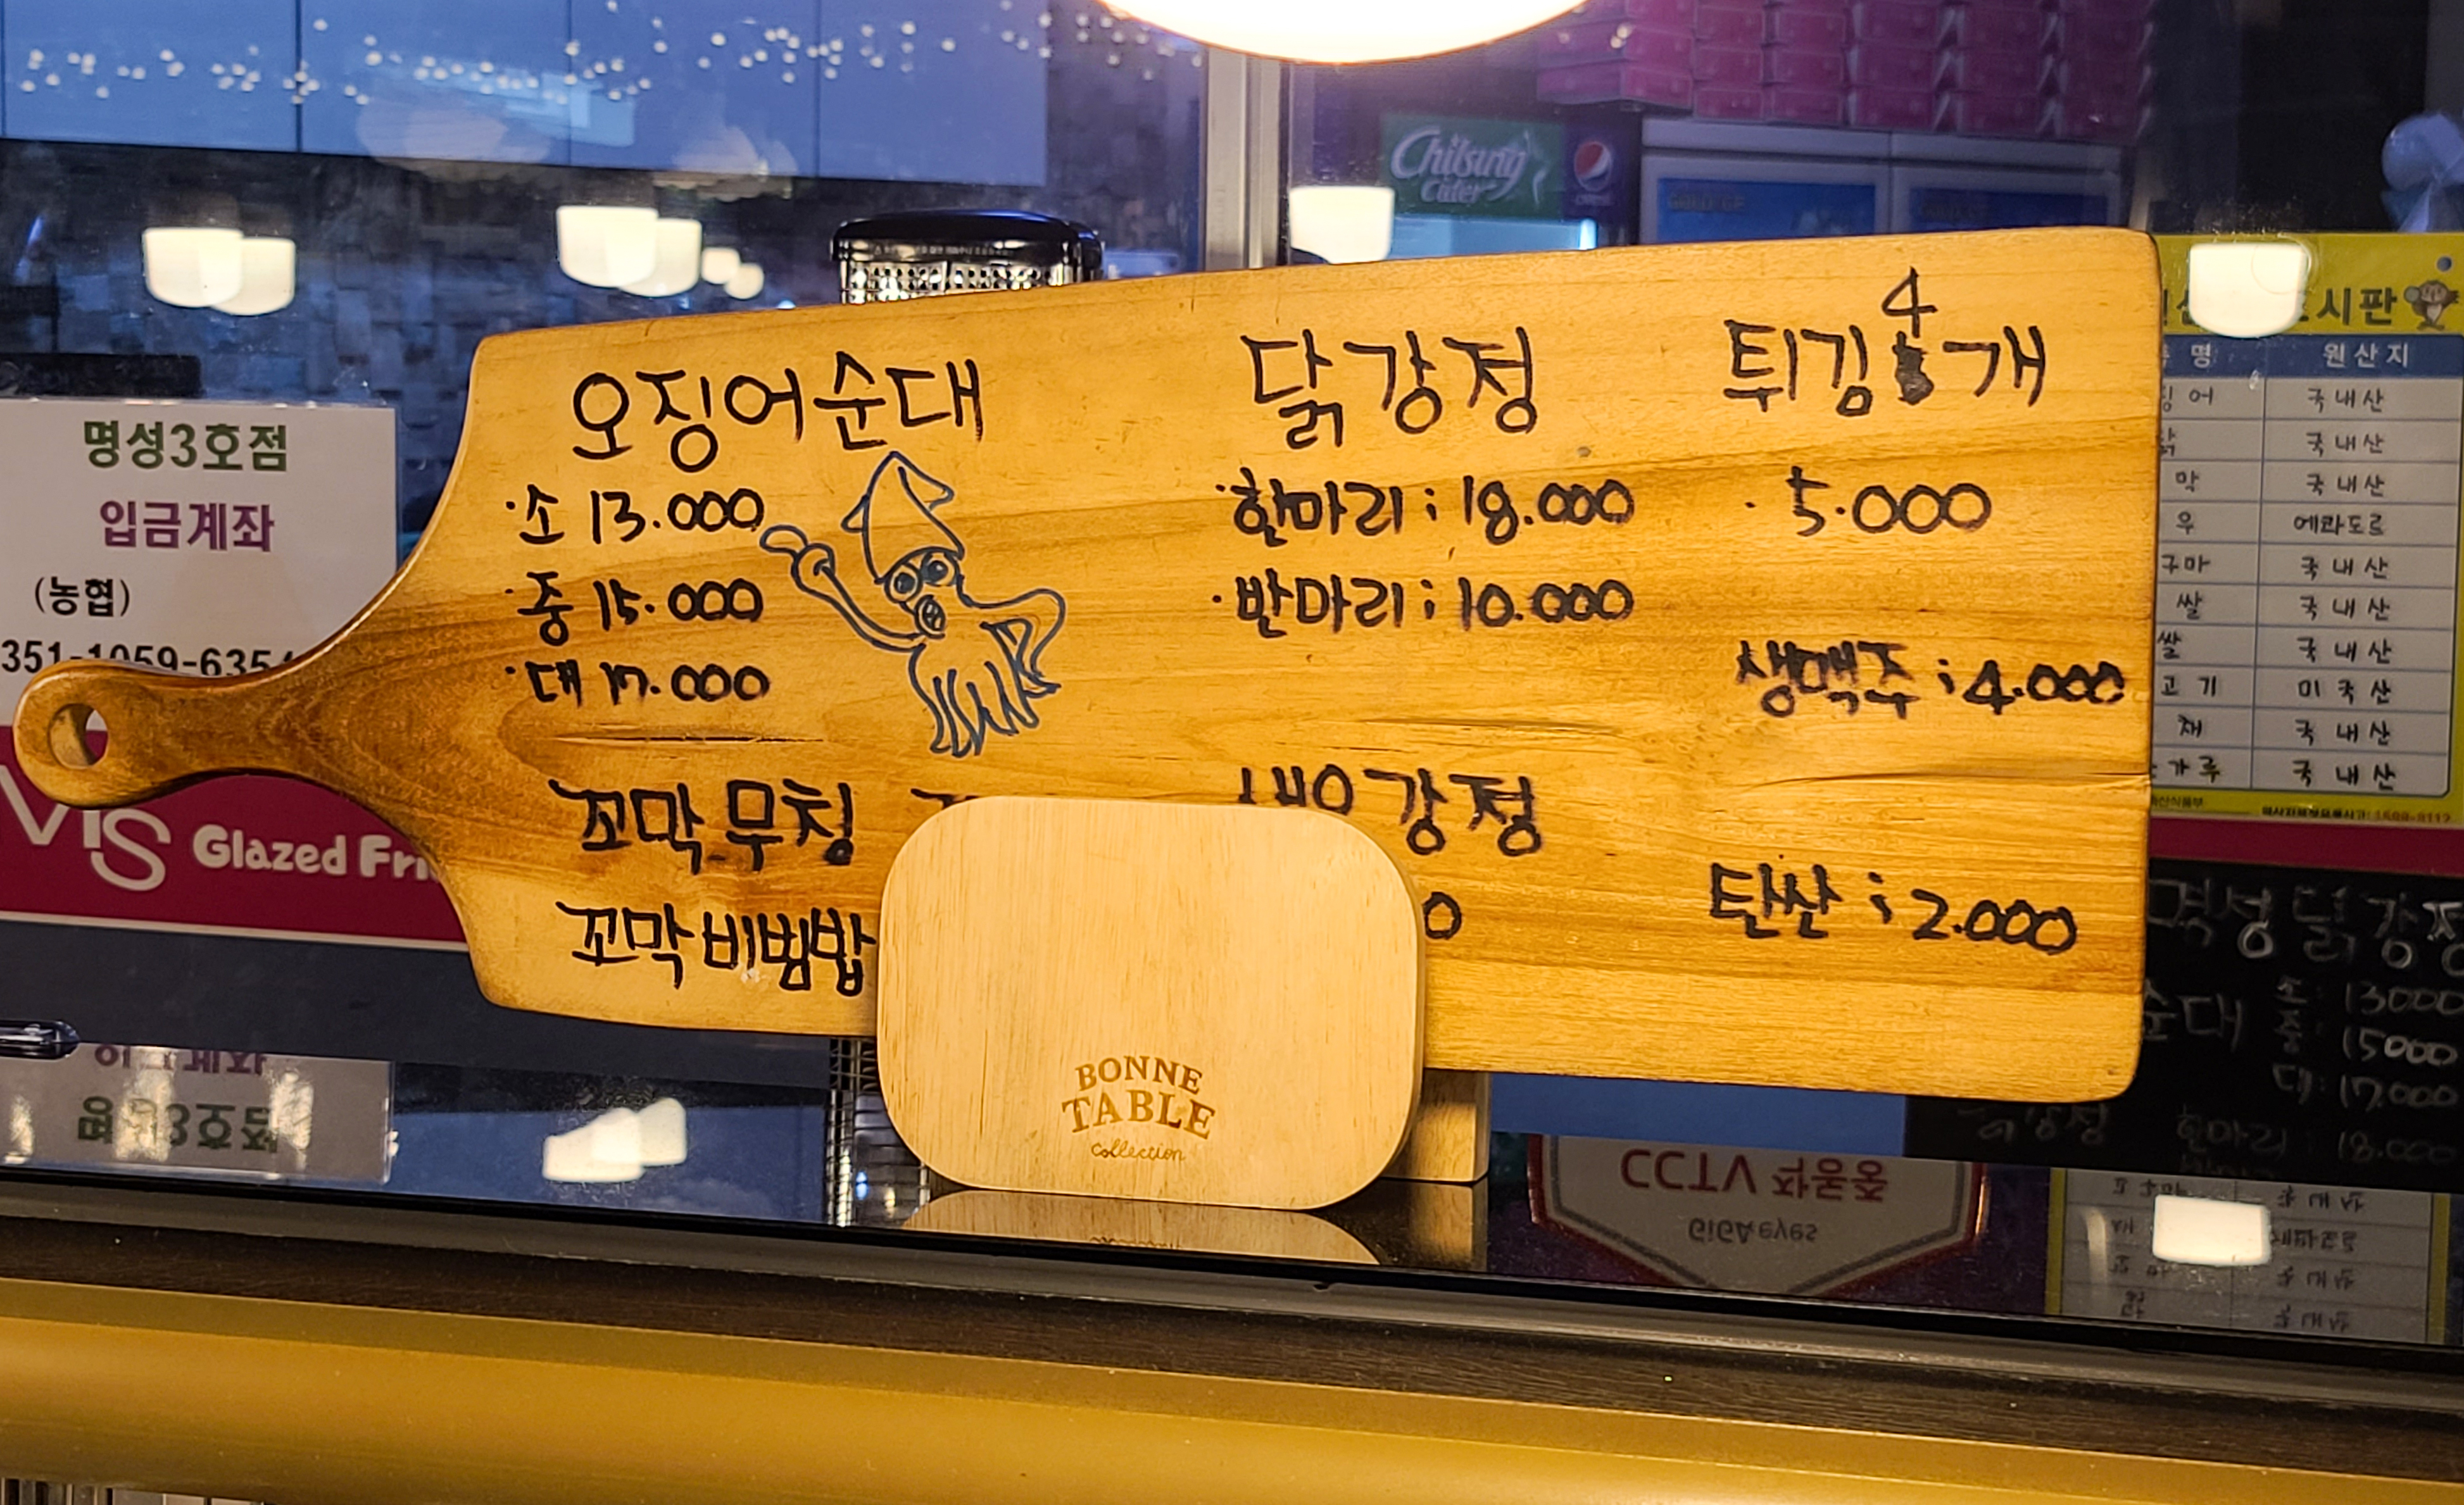 오징어순대
· 소 13.000
· 중 15.000
· 대 17.000
꼬막무침
꼬막비빔밥
닭강정
· 한마리 ; 18.000
· 반마리 ; 10.000
새우강정
튀김 4개
· 5.000
생맥주 ; 4.000
탄산 ; 2.000
BONNE
TABLE
collection
명성3호점
입금계좌
(농협)
351-1059-635
Glazed
Chilsung
Cider
시판
명 원산지
어 국내산
닭 국내산
막 국내산
우 에콰도르
구마 국내산
쌀 국내산
쌀 국내산
고기 미국산
재 국내산
가루 국내산
명성닭강정
순대 소 : 13000
중 : 15000
대 : 17.000
닭강정 한마리 : 18.000
CCTV 작동중
GiGA eyes